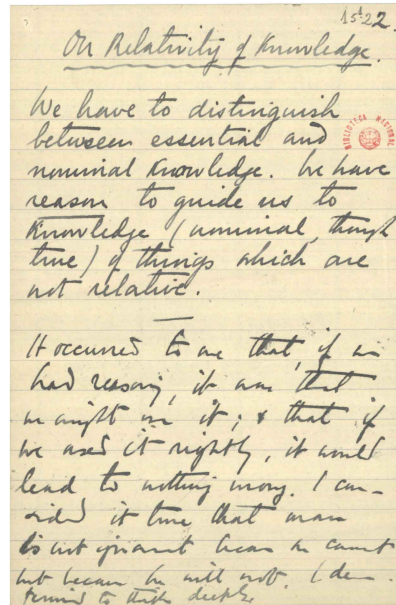 15¹22.
On Relativity of Knowledge.
We have to distinguish
between essential and
nominal Knowledge. We have
reason to guide us to
Knowledge (nominal, though
true) of things which are
not relative.
It occurred to me that, if we
had reason, it was that
we might use it; & that if
we used it rightly, it would
lead to nothing wrong. I con-
sider it true, that man
is not ignorant because he cannot
but because he will not. I de-
termined to think deeply.
BIBLIOTECA NACIONAL